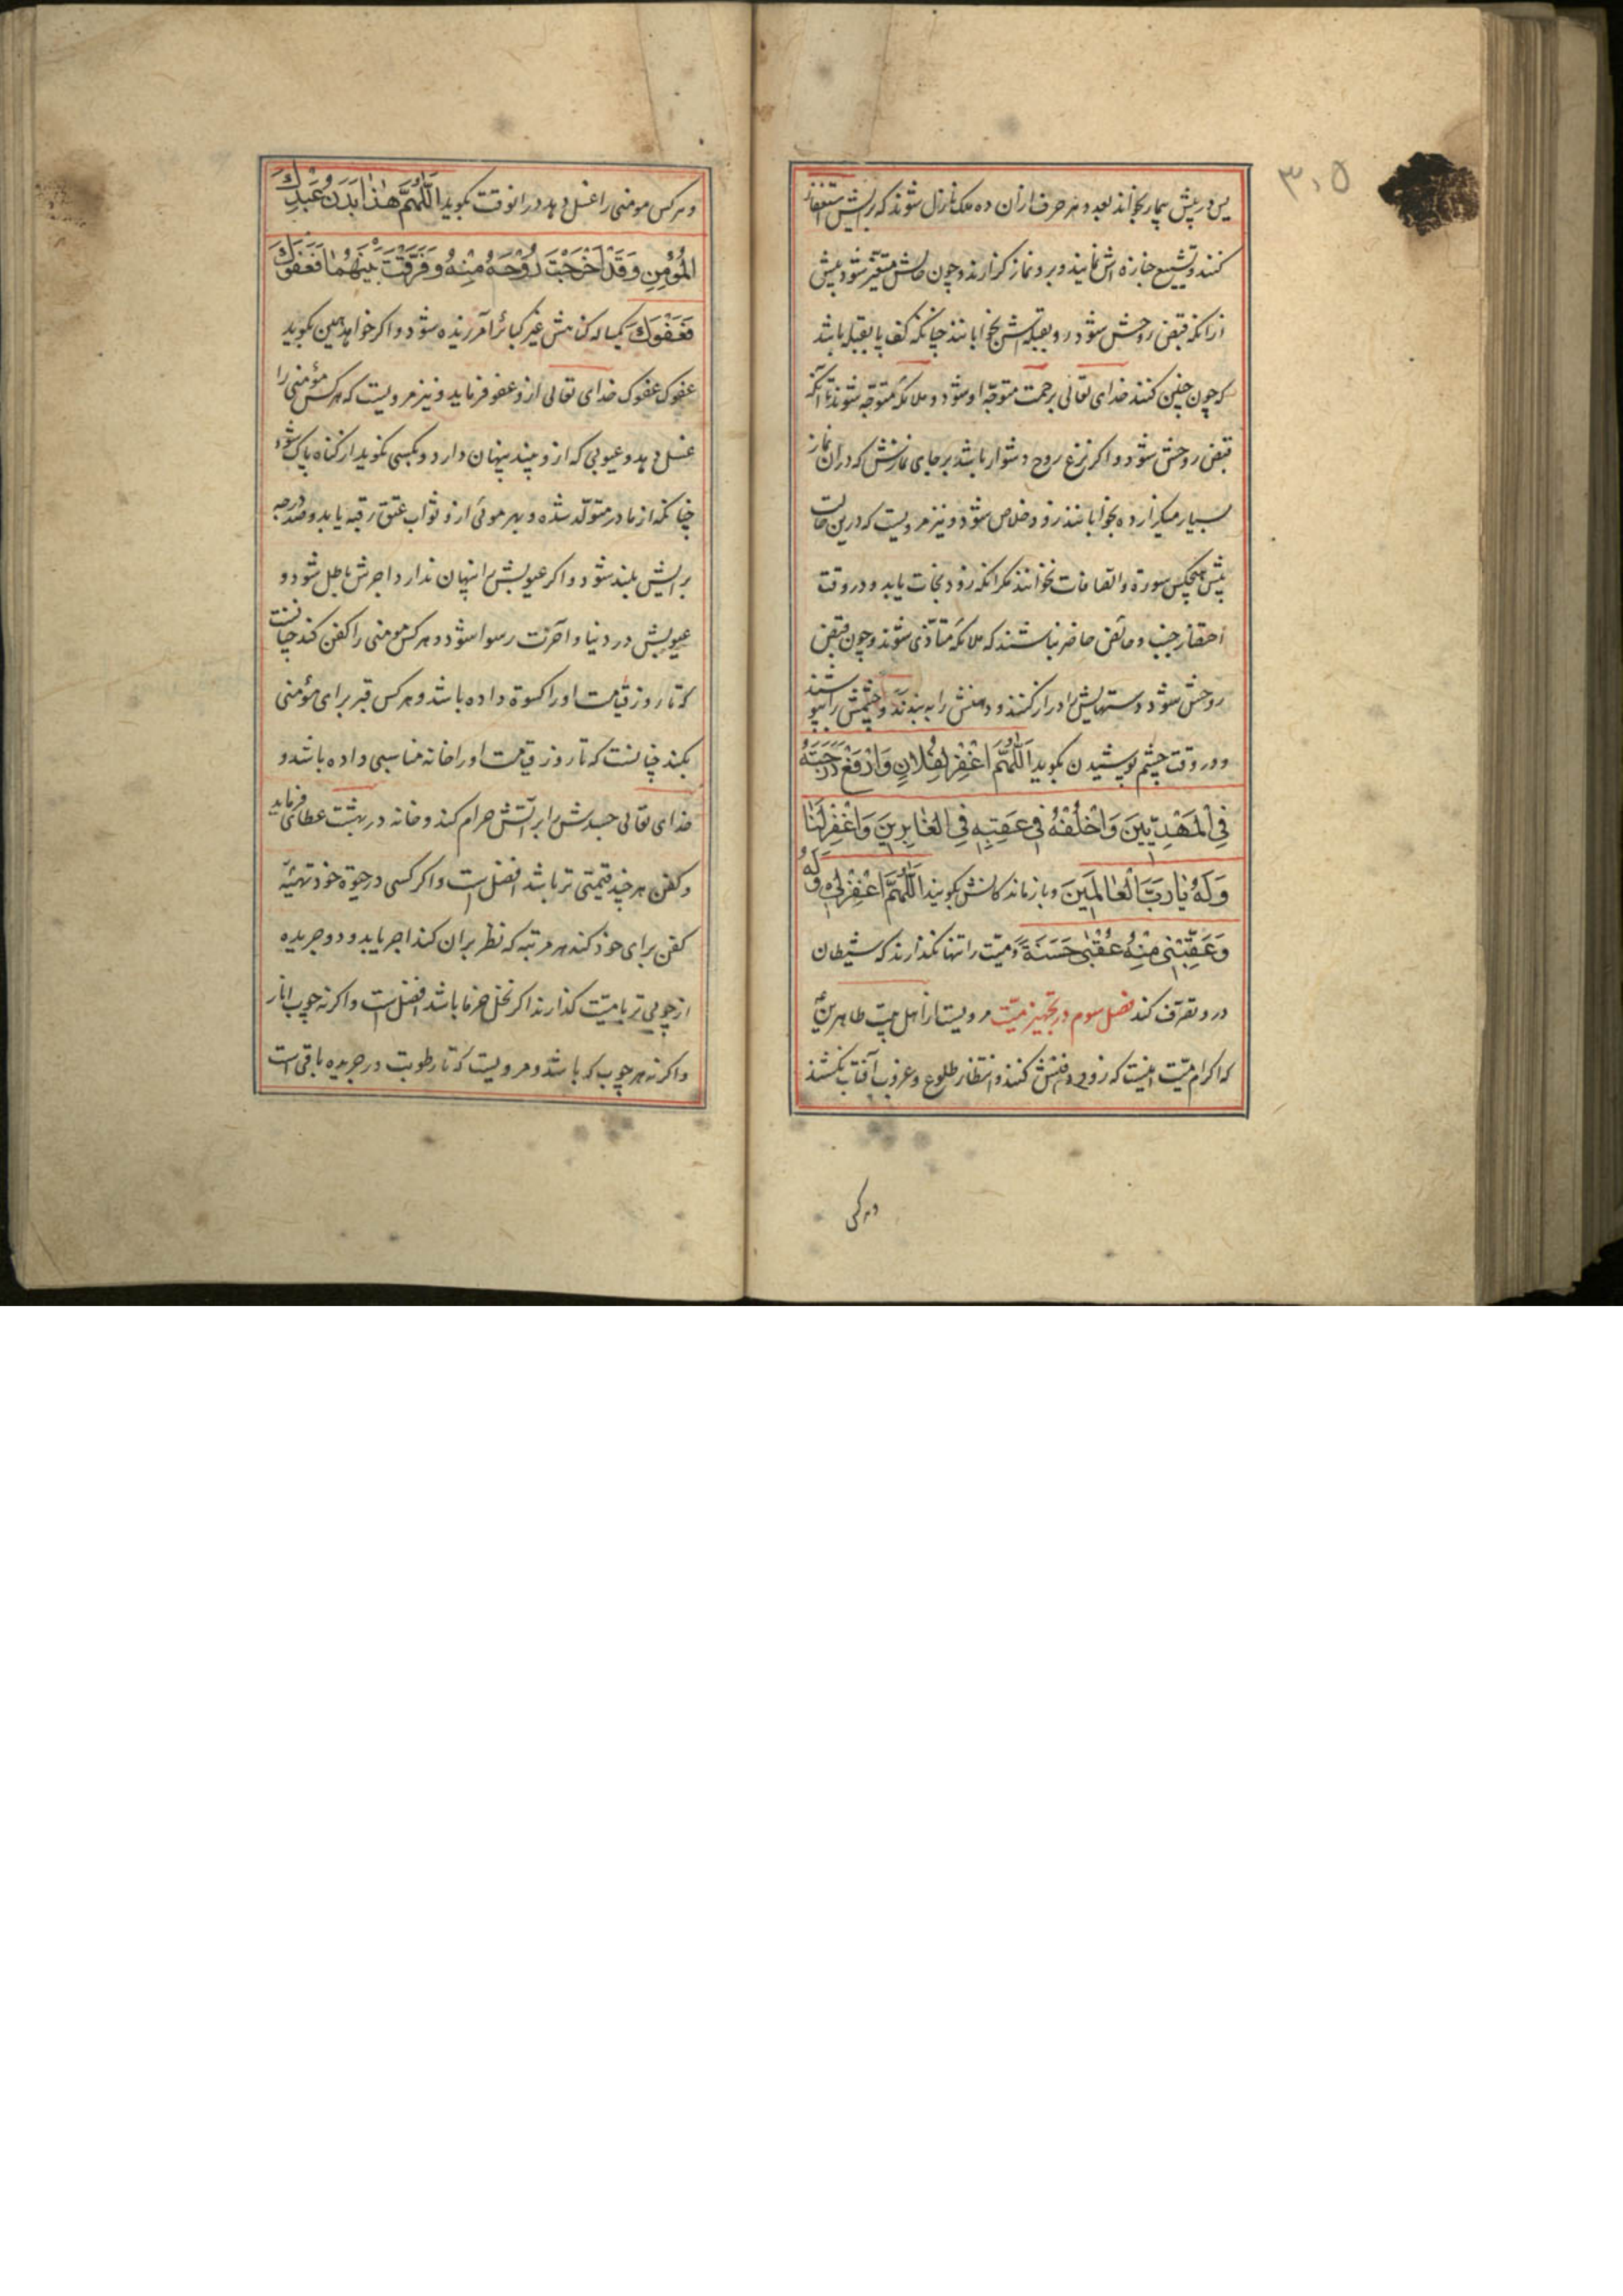 یس در پیش بیمار بخواند بعدد هر حرف ازان ده ملک نازل شوند که برایش استغفار
کنند و تشییع جنازه اش نمایند و برو نماز گزارند و چون حالش متغیر شود پیش
ازانکه قبض روحش شود رو بقبله اش بخوابانند چنانکه کف پا بقبله باشد
که چون چنین کنند خدای تعالی برحمت متوجّه او شود و ملائکه متوجّه شوند تا آنکه
قبض روحش شود و اگر نزع روح دشوار باشد بر جای نمازش که دران نماز
بسیار میگزارده بخوابانند زود خلاص شود و نیز مرویست که درین حالت
پیش هیچکس سورة والصافات نخوانند مگر انکه زود نجات یابد و در وقت
احتضار جنب و حائض حاضر نباشند که ملائکه متأذّی شوند و چون قبض
روحش شود دستهایش را دراز کنند و دهنش را به بندند و چشمش را بپوشند
و در وقت چشم پوشیدن بگوید اَللّٰهُمَّ اغْفِرْ لِفُلانٍ وَارْفَعْ دَرَجَتَهُ
فِی الْمَهْدِیّینَ وَاخْلُفْهُ فی عَقِبِهِ فِی الْغابِرینَ وَاغْفِرْ لَنا
وَلَهُ یا رَبَّ الْعالَمینَ و بازماندکانش بگویند اَللّٰهُمَّ اغْفِرْ لی وَلَهُ
وَعَقِّبْنی مِنْهُ عُقْبٰی حَسَنَةً و میّت را تنها نگذارند که شیطان
درو تصرّف کند فصل سوم در تجهیز میّت مرویست از اهل بیت طاهرین
که اکرام میّت اینست که زود دفنش کنند و انتظار طلوع و غروب آفتاب نکشند
و هر کس
و هر کس مومنی را غسل دهد در انوقت بگوید اَللّٰهُمَّ هٰذا بَدَنُ عَبْدِكَ
الْمُؤْمِنِ وَقَدْ اَخْرَجْتَ رُوْحَهُ مِنْهُ وَفَرَّقْتَ بَیْنَهُما فَعَفْوَكَ
فَعَفْوَكَ یکساله کناهش غیر کبائر آمرزیده شود و اگر خواهد همین بگوید
عفوک عفوک خدای تعالی ازو عفو فرماید و نیز مرویست که هر کس مؤمنی را
غسل دهد و عیوبی که ازو بیند پنهان دارد و بکسی نگوید از کناه پاک شود
چنانکه از مادر متولّد شده و بهر موئی ازو ثواب عتق رقبه یابد و صد درجه
برایش بلند شود و اگر عیوبش را پنهان ندارد اجرش باطل شود و
عیوبش در دنیا و آخرت رسوا شود و هر کس مومنی را کفن کند چنانست
که تا روز قیامت او را کسوة داده باشد و هر کس قبر برای مؤمنی
بکند چنانست که تا روز قیامت او را خانه مناسبی داده باشد و
خدای تعالی جسدش را بر آتش حرام کند و خانه در بهشت عطا فرماید
و کفن هر چند قیمتی تر باشد افضل است و اگر کسی در حیوة خود تهیّهٔ
کفن برای خود کند هر مرتبه که نظر بران کند اجر یابد و دو جریده
از چوبی تر با میّت گذارند اگر نخل خرما باشد افضل است و اگر نه چوب انار
و اگر نه هر چوب که باشد و مرویست که تا رطوبت در جریده باقی است